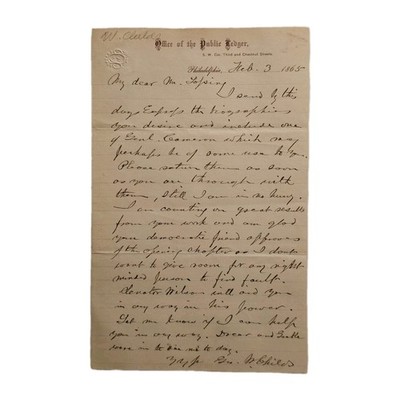 W. Childs
Office of the Public Ledger,
S. W. Cor. Third and Chestnut Streets
Philadelphia, Feb. 3 1865
My dear Mr. Topping
I send by this
days Express the biographies
you desire and include one
of Genl. Cameron which may
perhaps be of some use to you.
Please return them as soon
as you are through with
them, still I am in no hurry.
I am counting on great results
from your work and am glad
your democratic friend approves
of the opening chapter as I don't
want to give room for any right-
minded person to find fault.
Senator Wilson will aid you
in any way in his power.
Let me know if I can help
you in any way. and
were in to see me to day.
Geo. W. Childs